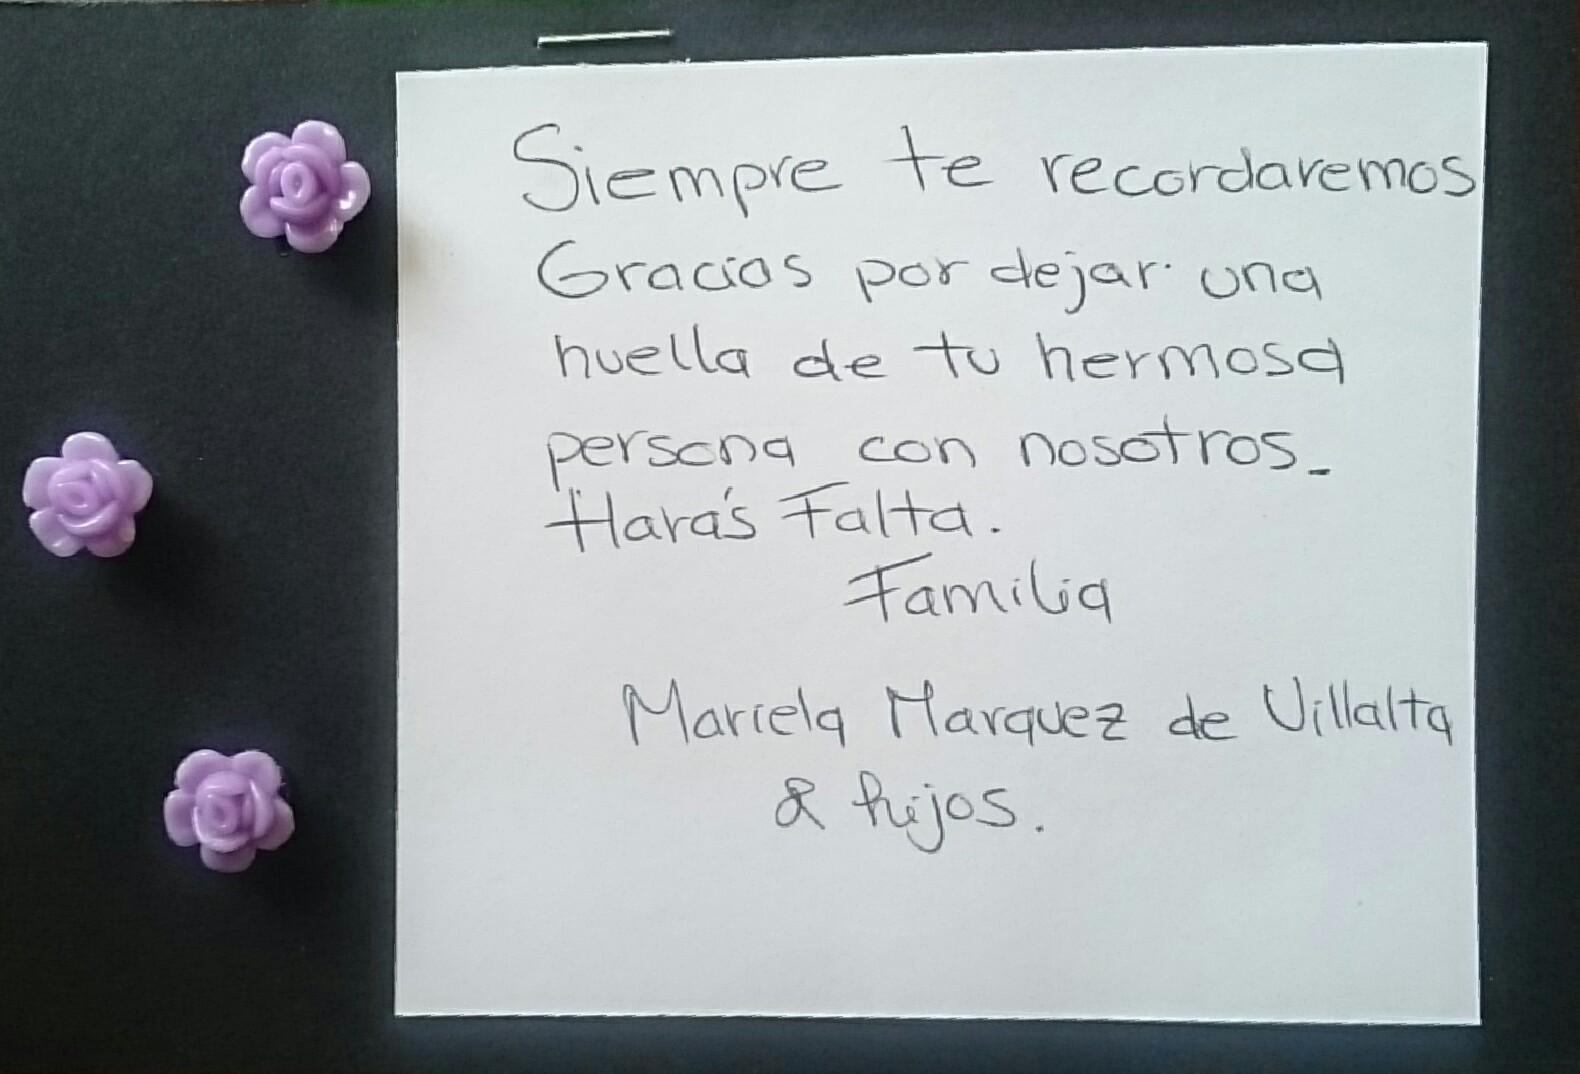 Siempre te recordaremos
Gracias por dejar una
huella de tu hermosa
persona con nosotros.
Harás Falta.
Familia
Mariela Marquez de Villalta
& hijos.